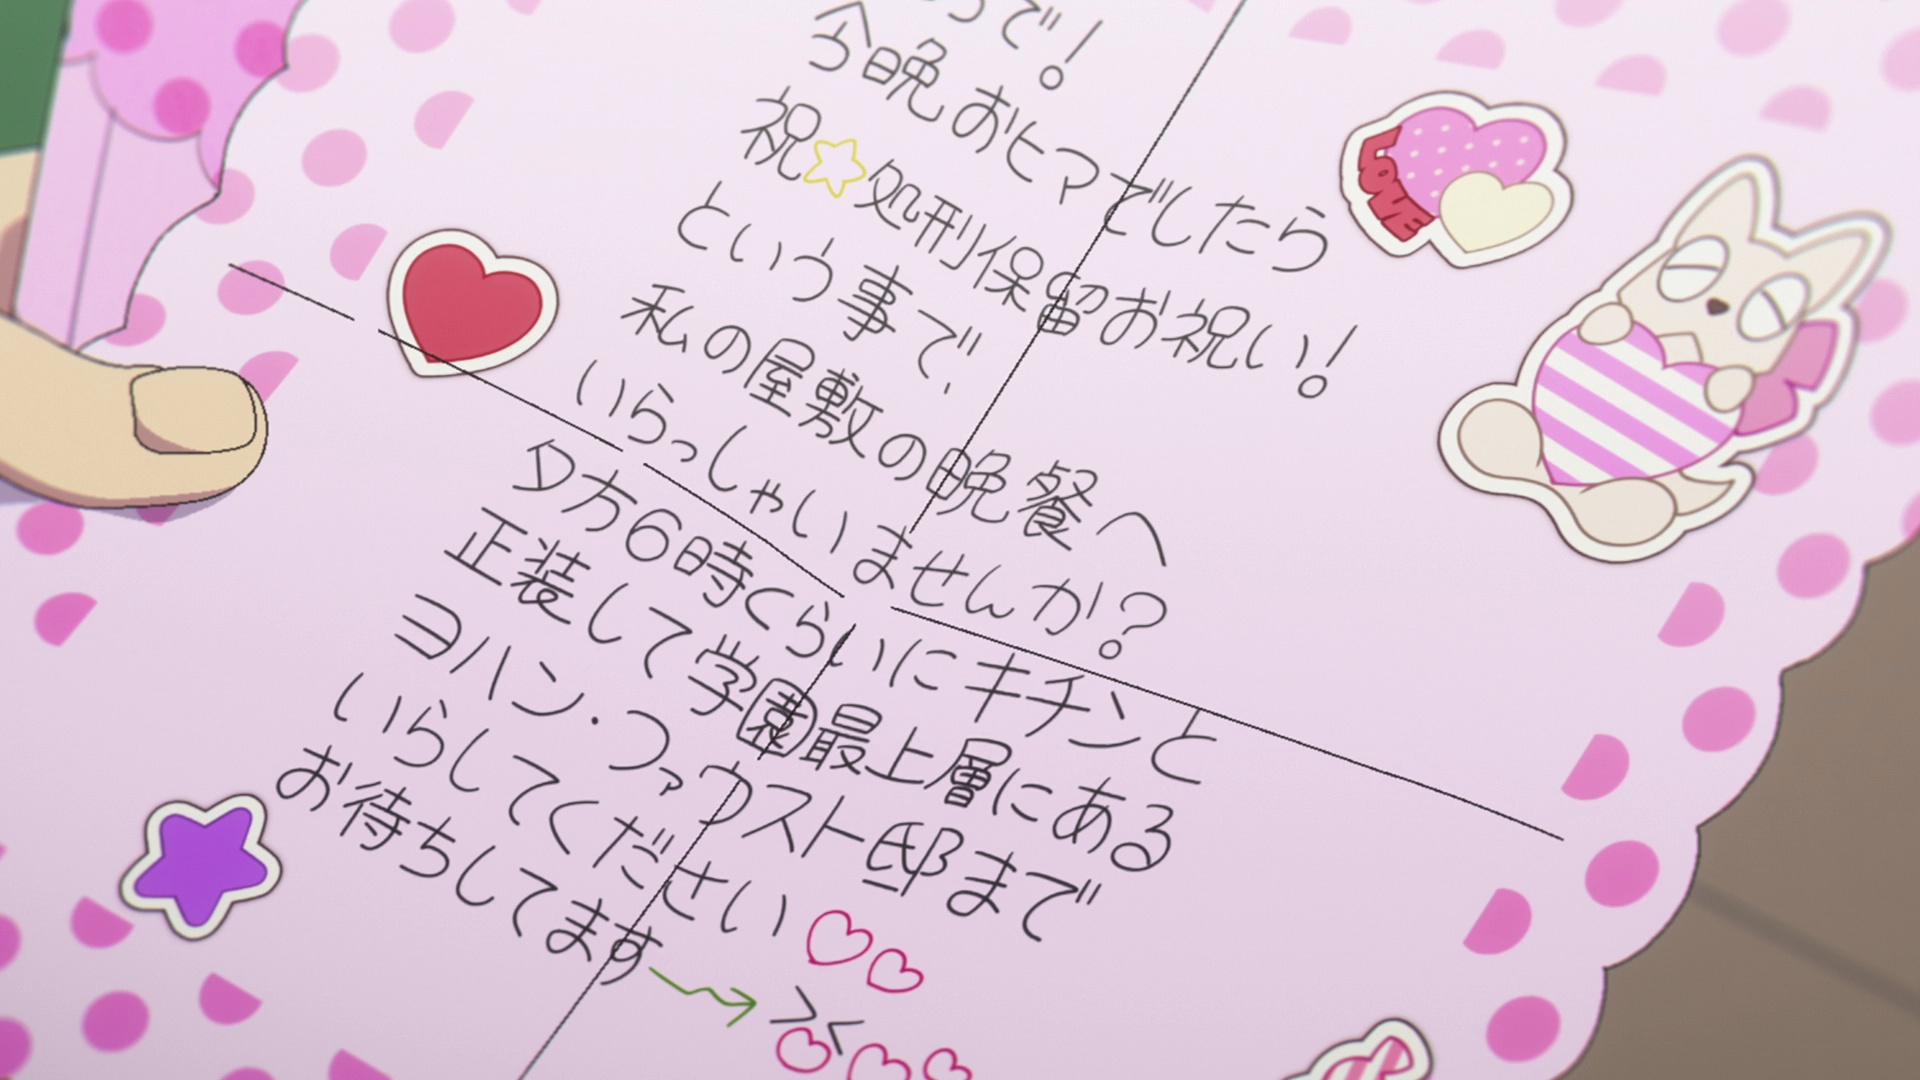 って!
今晩おヒマでしたら
祝☆処刑保留お祝い!
という事で、
私の屋敷の晩餐へ
いらっしゃいませんか?
夕方6時くらいにキチンと
正装して学園最上層にある
ヨハン・ファウスト邸まで
いらしてください♡♡
お待ちしてます
><
LOVE